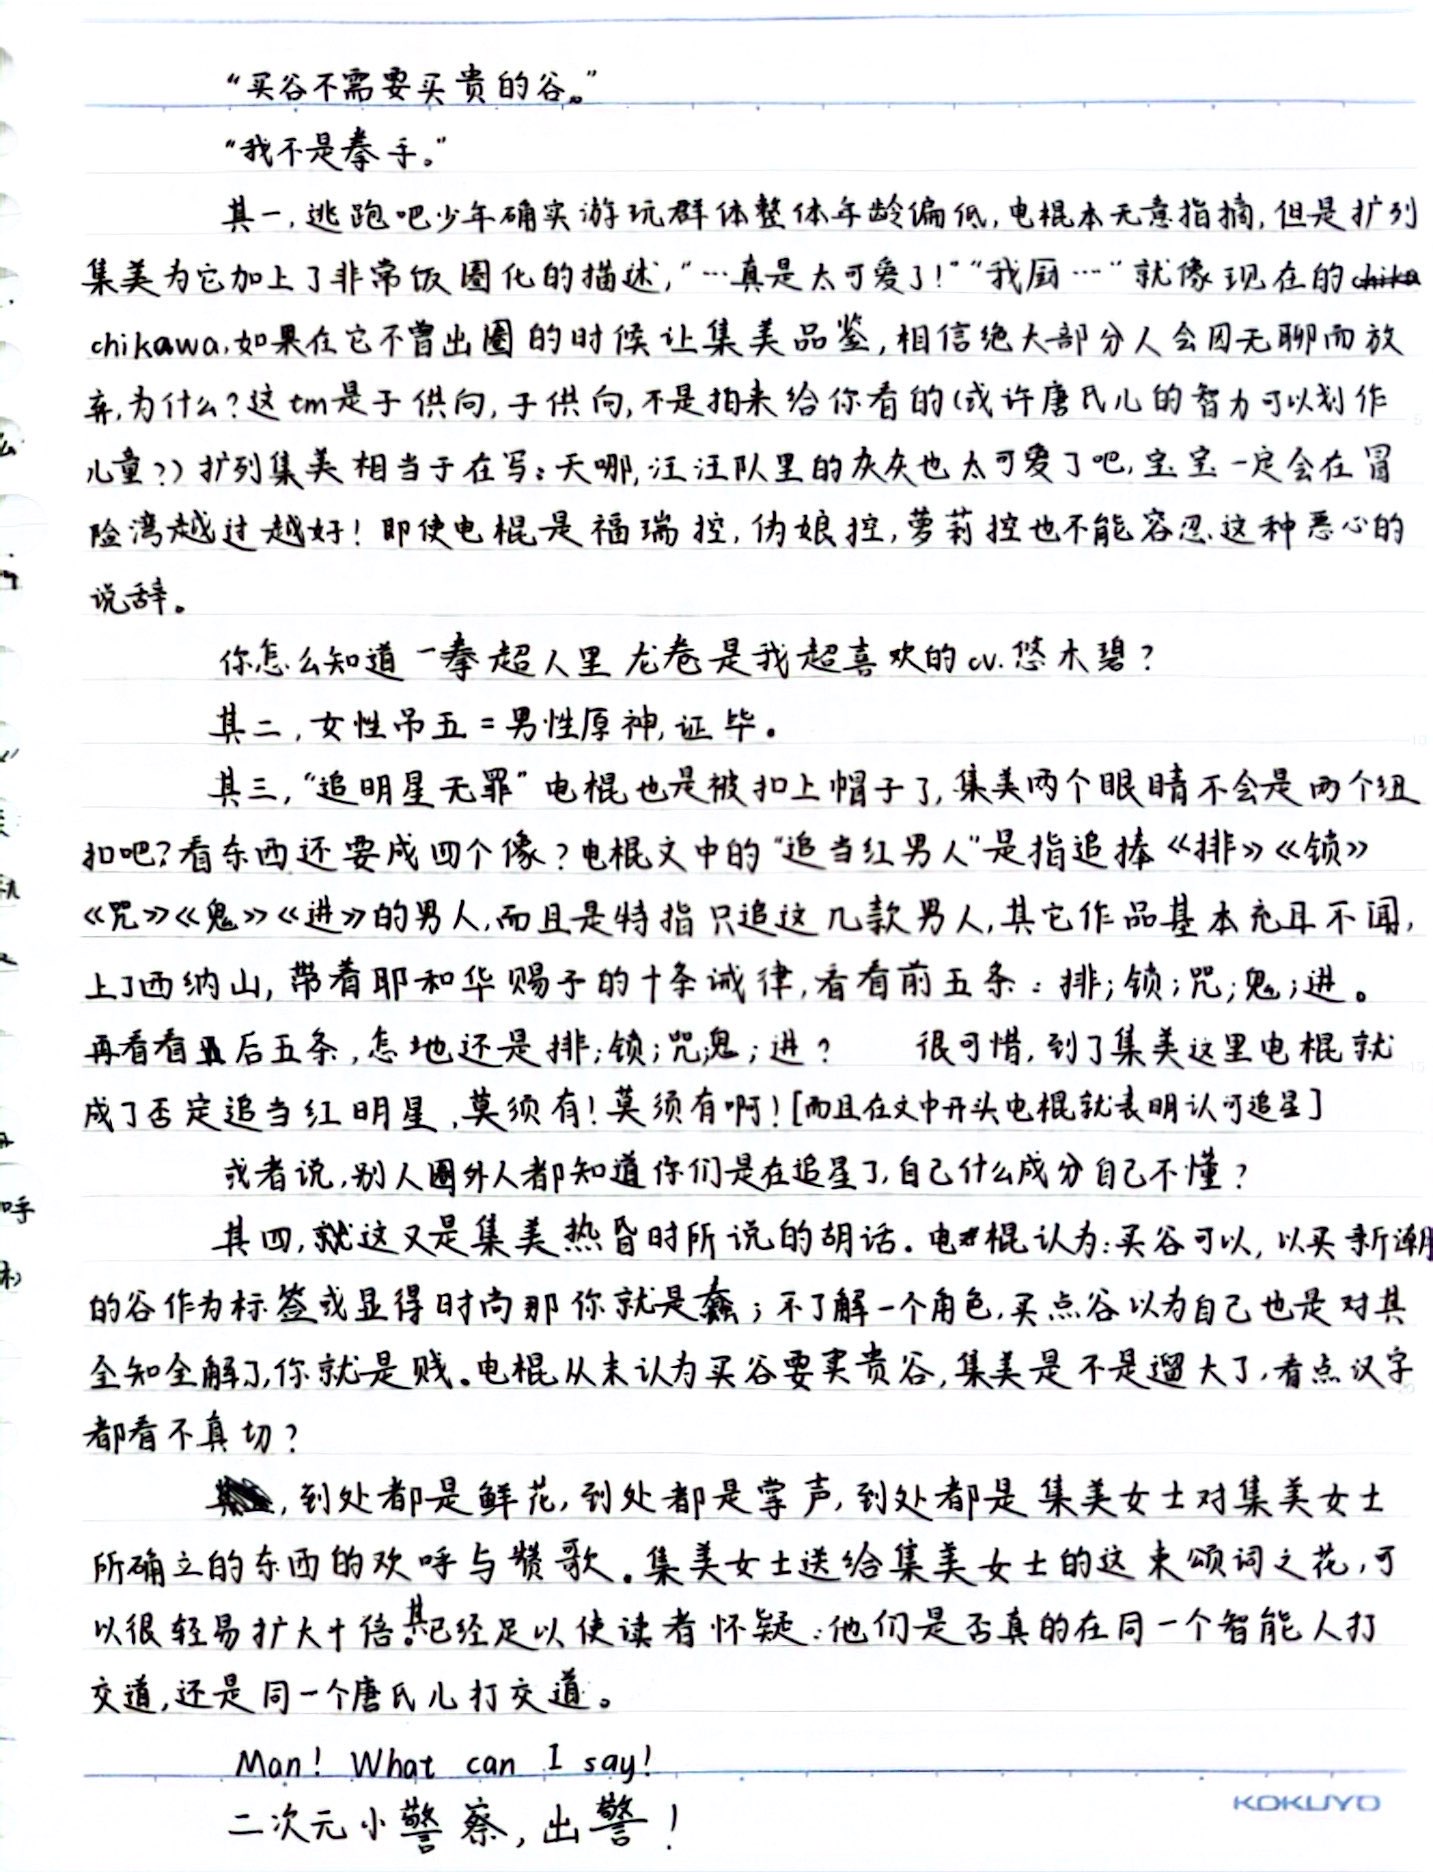 “买谷不需要买贵的谷。”
“我不是拳手。”
其一，逃跑吧少年确实游玩群体整体年龄偏低，电棍本无意指摘，但是扩列
集美为它加上了非常饭圈化的描述，“…真是太可爱了！”“我厨…”就像现在的chika
chikawa，如果在它不曾出圈的时候让集美品鉴，相信绝大部分人会因无聊而放
弃，为什么？这tm是子供向，子供向，不是拍来给你看的（或许唐氏儿的智力可以划作
儿童？）扩列集美相当于在写：天哪，汪汪队里的灰灰也太可爱了吧，宝宝一定会在冒
险湾越过越好！即使电棍是福瑞控，伪娘控，萝莉控也不能容忍这种恶心的
说辞。
你怎么知道一拳超人里龙卷是我超喜欢的cv.悠木碧？
其二，女性吊五=男性原神，证毕。
其三，“追明星无罪”电棍也是被扣上帽子了，集美两个眼睛不会是两个纽
扣吧？看东西还要成四个像？电棍文中的“追当红男人”是指追捧《排》《锁》
《咒》《鬼》《进》的男人，而且是特指只追这几款男人，其它作品基本充耳不闻，
上了西纳山，带着耶和华赐予的十条诫律，看看前五条：排；锁；咒；鬼；进。
再看看后五条，怎地还是排；锁；咒；鬼；进？ 很可惜，到了集美这里电棍就
成了否定追当红明星，莫须有！莫须有啊！[而且在文中开头电棍就表明认可追星]
或者说，别人圈外人都知道你们是在追星了，自己什么成分自己不懂？
其四，就这又是集美热昏时所说的胡话。电棍认为：买谷可以，以买新潮
的谷作为标签或显得时尚那你就是蠢；不了解一个角色，买点谷以为自己也是对其
全知全解了，你就是贱。电棍从未认为买谷要买贵谷，集美是不是遛大了，看点汉字
都看不真切？
，到处都是鲜花，到处都是掌声，到处都是集美女士对集美女士
所确立的东西的欢呼与赞歌。集美女士送给集美女士的这束颂词之花，可
以很轻易扩大十倍。其已经足以使读者怀疑：他们是否真的在同一个智能人打
交道，还是同一个唐氏儿打交道。
Man! What can I say!
二次元小警察，出警！
KOKUYO